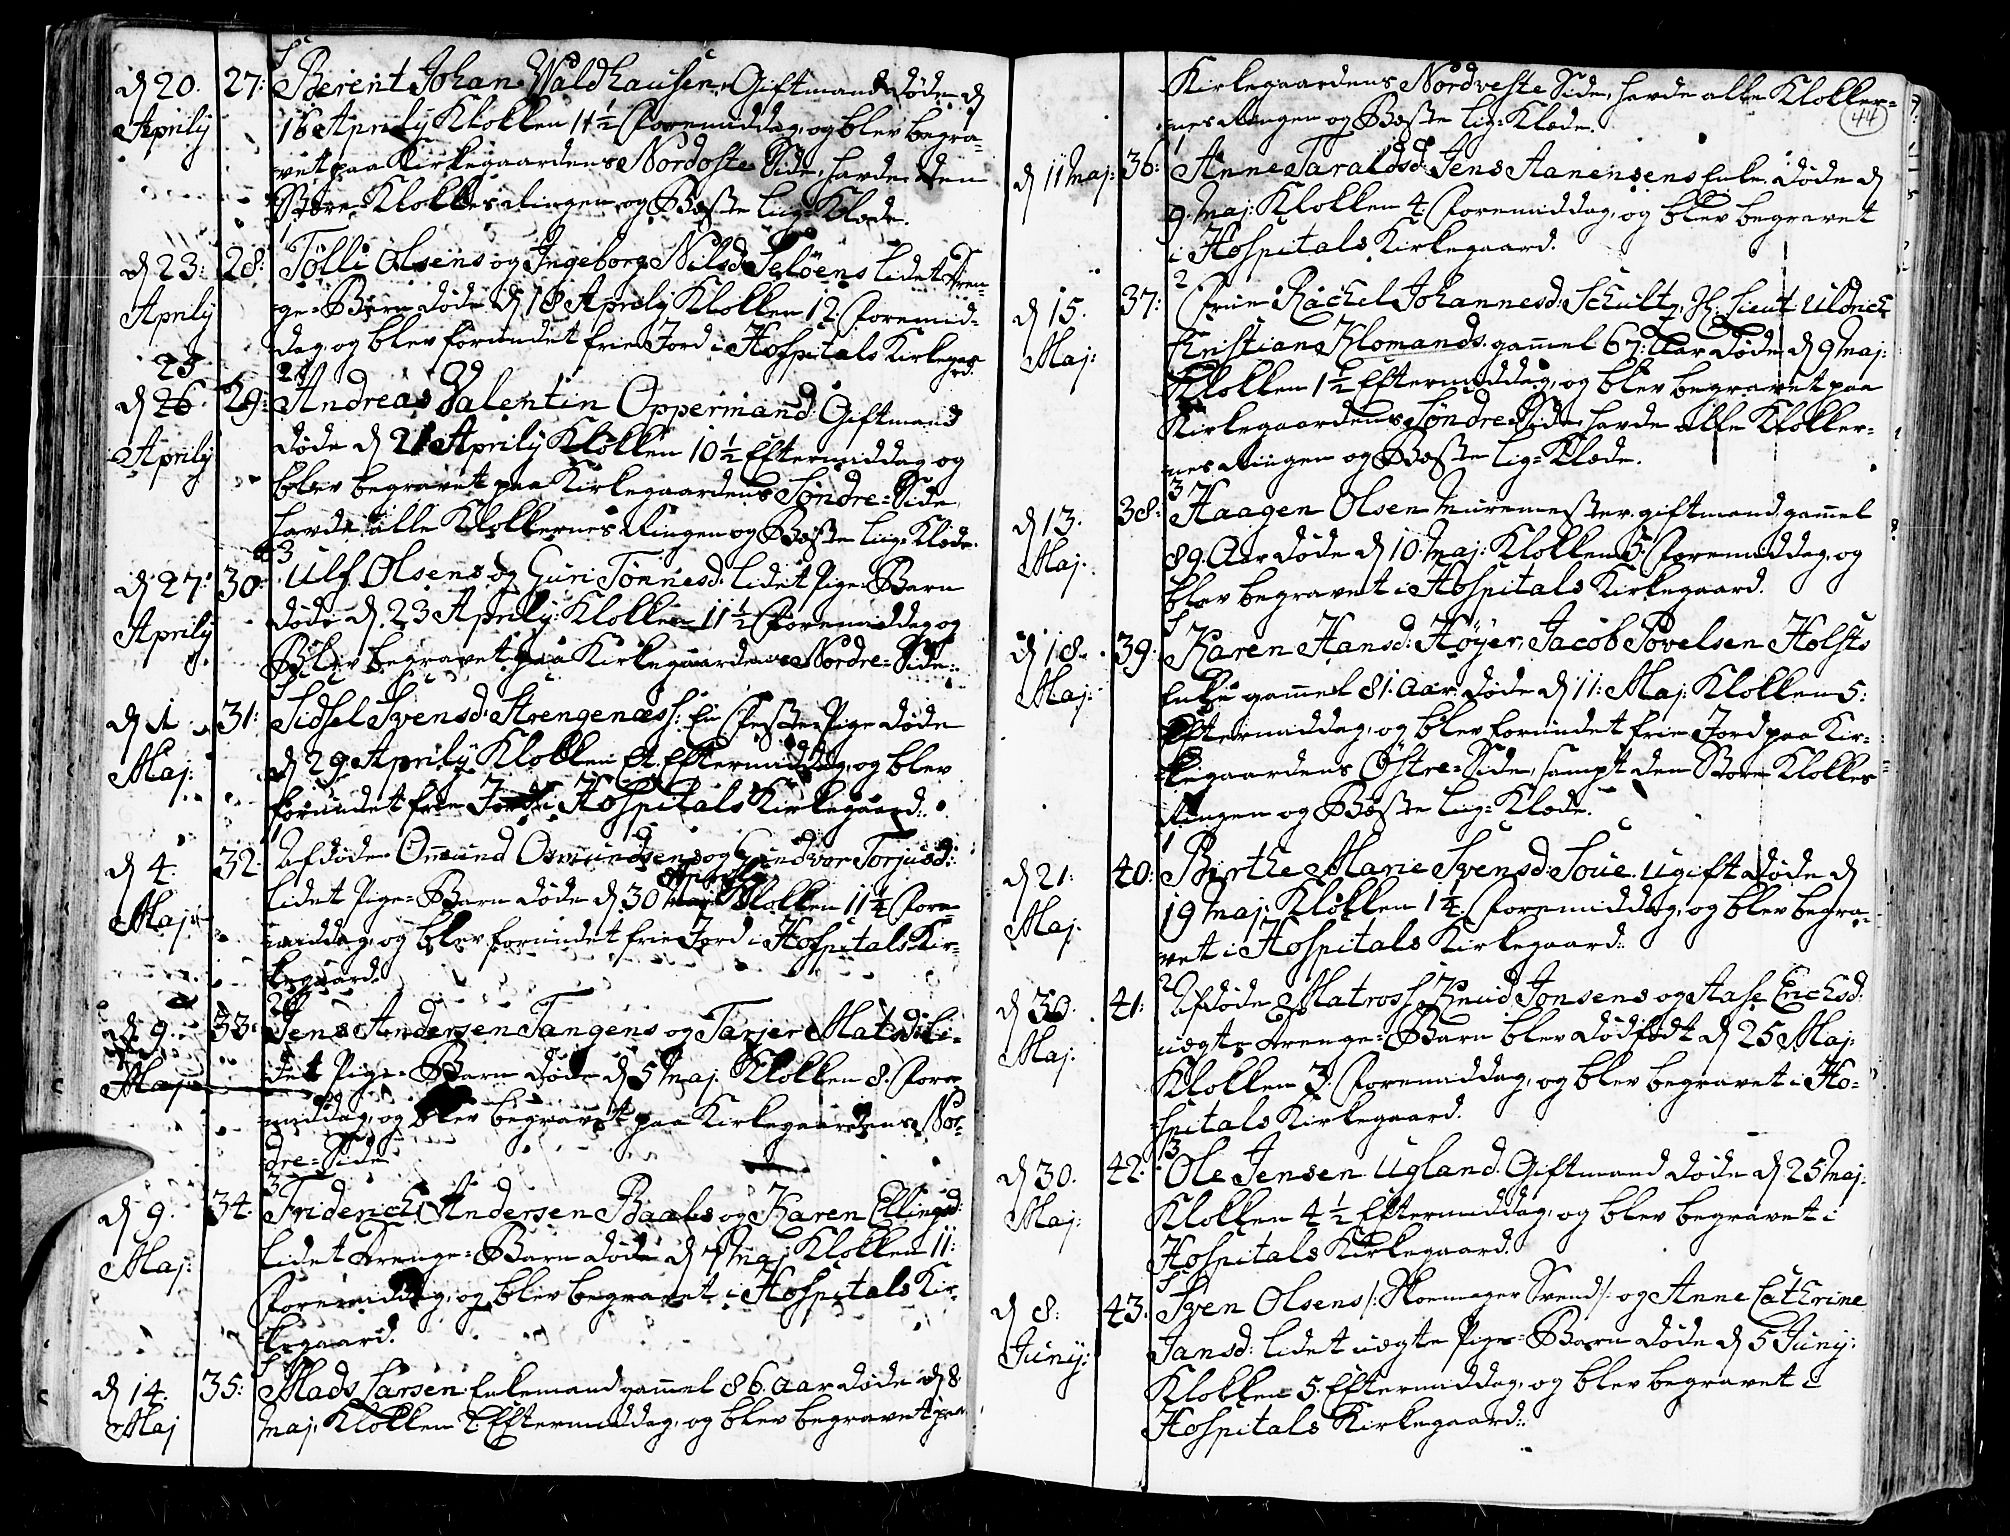 d 20. 27: Berent Johan Waldhausen Giftmand døde d
Aprily 16 Aprily Klokken 11½ Formiddag, og blev begra-
vet paa Kirkegaardens Nordoste Side, havde den
Store Klokkes Ringen og Beste Liig-Klæde.
d 23: 28: Tølli Olsens og Ingeborg Nilsd: Seløens lidet Dren-
Aprily ge-Barn døde d 18 Aprily Klokken 12. Formid-
dag, og blev forundet frie Jord i Hospitals Kirkegaard.
25
d 26. 29: Andreas Valentin Oppermand Giftmand
Aprily døde d 21 Aprily Klokken 10½ Eftermiddag og
blev begravet paa Kirkegaardens Søndre-Side,
havde alle Klokkernes Ringen og Beste Liig-Klæde.
3
d 27: 30: Ulf Olsens og Guri Tønnesd: lidet Pige-Barn
Aprily døde d. 23 Aprily Klokken 11½ Formiddag og
blev begravet paa Kirkegaardens Nordre-Side:
d 1 31: Sidsel Svensd: Strengenæss: En Pige døde
Maj: d 29 Aprily Klokken Et Eftermiddag, og blev
forundet frie Jord i Hospitals Kirkegaard.
d 4. 32. Afdøde Omund Osmundsens og Gundvor Torjusd:
Aprily
Maj: lidet Pige-Barn døde d 30 Klokken 11¼ For-
middag, og blev forundet frie Jord i Hospitals Kir-
kegaard.
2
d 9. 33: Jens Andersen Tangens og Tarjer Matsd: li-
Maj: det Pige-Barn døde d 5 Maj. Klokken 8. For-
middag, og blev begravet paa Kirkegaardens Nor-
dre-Side.
3
d 9. 34. Friderich Andersen Baals og Karen Ellingsd:
Maj: lidet Drenge-Barn døde d 7 Maj Klokken 11:
Formiddag, og blev begravet i Hospitals Kir-
kegaard.
d 14. 35: Mads Larsen Enkemand gammel 86 Aar døde d 8
Maj Maj. Klokken 2 Eftermiddag, og blev begravet paa
44
Kirkegaardens Nordveste Side, havde alle Klokker-
nes Ringen og Beste Lig-Klæde.
d 11 Maj: 36: Anne Taraldsd: Jens Aanensens Enke, døde d
9. Maj: Klokken 4 Formiddag, og blev begravet
i Hospitals Kirkegaard.
2
d 15. 37: Frue Rachel Johannesd: Schultz, Hr: Lieut: Uldrich
Maj: Kristian Klomands gammel 67: Aar døde d 9 Maj:
Klokken 1½ Eftermiddag, og blev begravet paa
Kirkegaardens Søndre Side, havde alle Klokker-
nes Ringen og Beste Lig-Klæde.
3
d 13. 38: Haagen Olsen Muremester giftmand gammel
Maj: 89. Aar døde d 10. Maj: Klokken 5. Formiddag, og
blev begravet i Hospitals Kirkegaard.
d 18. 39: Karen Hansd: Høyer, Jacob Povelsen Holsts
Maj: Enke gammel 81. Aar døde d 11: Maj: Klokken 5:
Eftermiddag, og blev forundet frie Jord paa Kir-
kegaardens Østre-Side, sampt den Store Klokkes
Ringen og Beste Liig-Klæde.
1
d 21: 40: Birthe Marie Svensd: Soue. Ugift døde d
Maj. 19 Maj: Klokken 1¼. Formiddag, og blev begra-
vet i Hospitals Kirkegaard.
2
d 30. 41: Afdøde Matross Knud Jonsens og Aase Erichsd:
Maj: uægte Drenge-Barn blev dødfødt d 25 Maj:
Klokken 3. Formiddag, og blev begravet i Ho-
spitals Kirkegaard.
3
d 30. 42: Ole Jensen Ugland. Giftmand døde d 25 Maj:
Maj: Klokken 4½ Eftermiddag, og blev begravet i
Hospitals Kirkegaard.
d 8: 43: Sven Olsens /: Skoemager Svend /: og Anne Cathrine
Juny: Jansd: lidet uægte Pige-Barn døde d 5 Juny:
Klokken 5. Eftermiddag, og blev begravet i
Hospitals Kirkegaard: